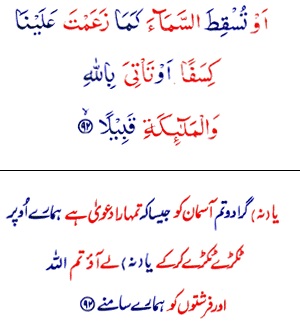 اَوْ تُسْقِطَ السَّمَآءَ كَمَا زَعَمْتَ عَلَيْنَا
كِسَفًا اَوْ تَاْتِيَ بِاللّٰهِ
وَالْمَلٰٓئِكَةِ قَبِيْلًا ۙ﴿۹۲﴾
یا (نہ) گرا دو تم آسمان کو جیسا کہ تمہارا دعویٰ ہے ہمارے اُوپر
ٹکڑے ٹکڑے کر کے یا (نہ) لے آؤ تم اللہ
اور فرشتوں کو ہمارے سامنے ﴿۹۲﴾